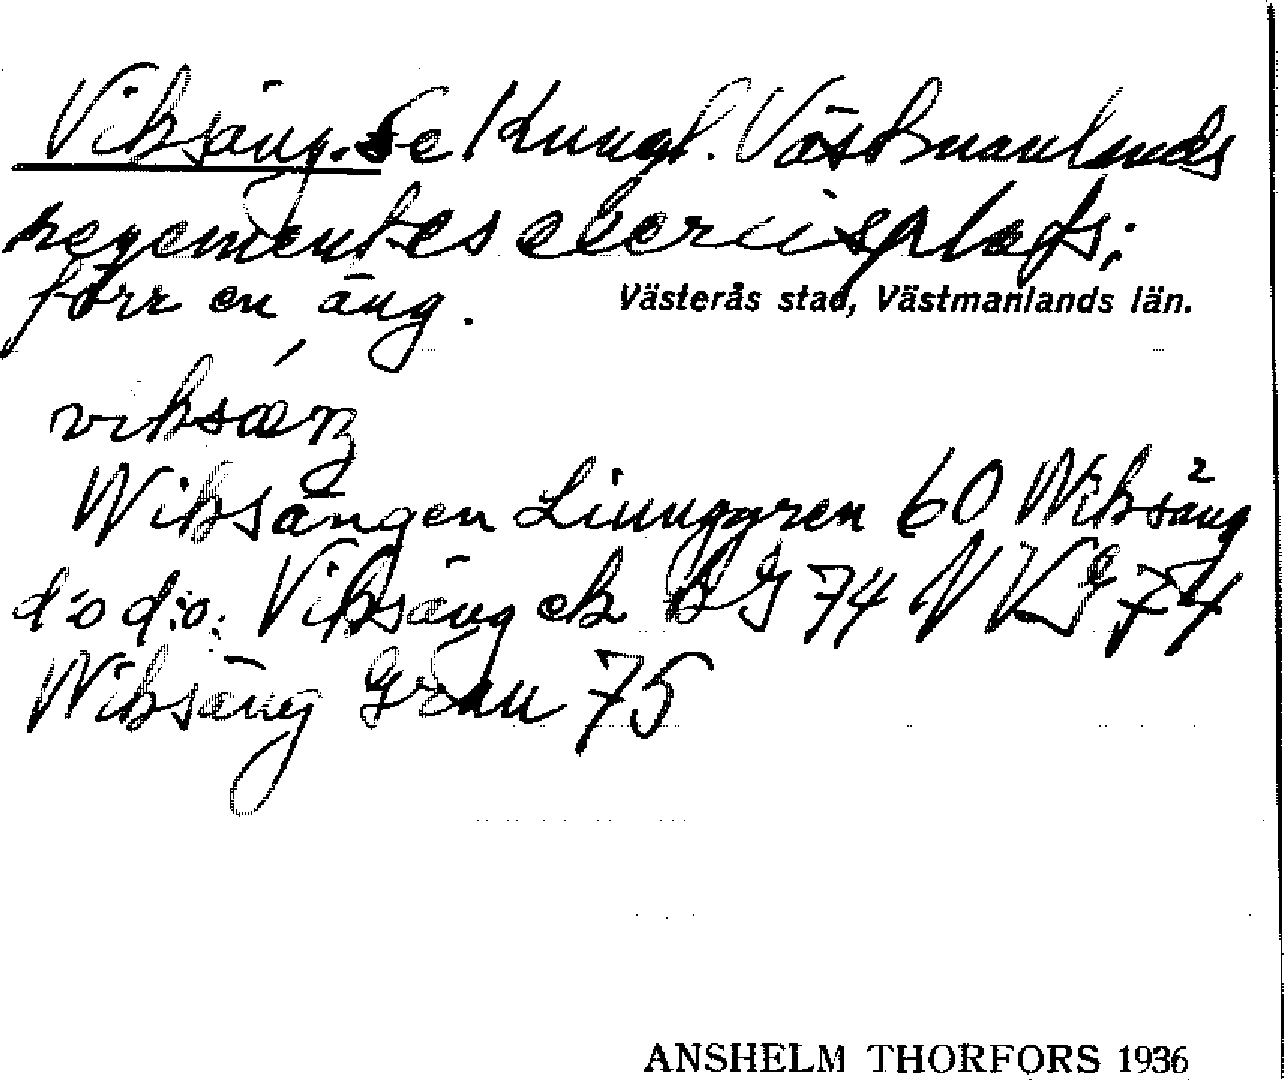 Viksäng. Se Kungl. Västmanlands
regementes exercisplats;
förr en äng.
Västerås stad, Västmanlands län.
viksæŋ
Wiksängen Ljunggren 60 Wiksäng
d:o d:o. Viksäng ek BG 74 VKG 74
Wiksäng Grau 75
ANSHELM THORFORS 1936